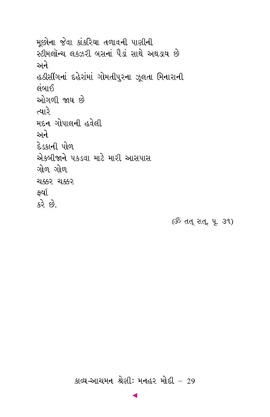 મૂછોના જેવા કાંકરિયા તળાવની પાસેની
સ્ટીમલૉન્ચ લકઝરી બસનાં પૈડાં સાથે અથડાય છે
અને
હઠીસીંગનાં દહેરાંમાં ગોમતીપુરના ઝૂલતા મિનારાની
લંબાઈ
ઓગળી જાય છે
ત્યારે
મદન ગોપાલની હવેલી
અને
દેડકાની પોળ
એકબીજાને પકડવા માટે મારી આસપાસ
ગોળ ગોળ
ચક્કર ચક્કર
ફર્યા
કરે છે.
(ૐ તત્ સત્, પૃ. ૩૧)
કાવ્ય-આચમન શ્રેણી: મનહર મોદી – 29